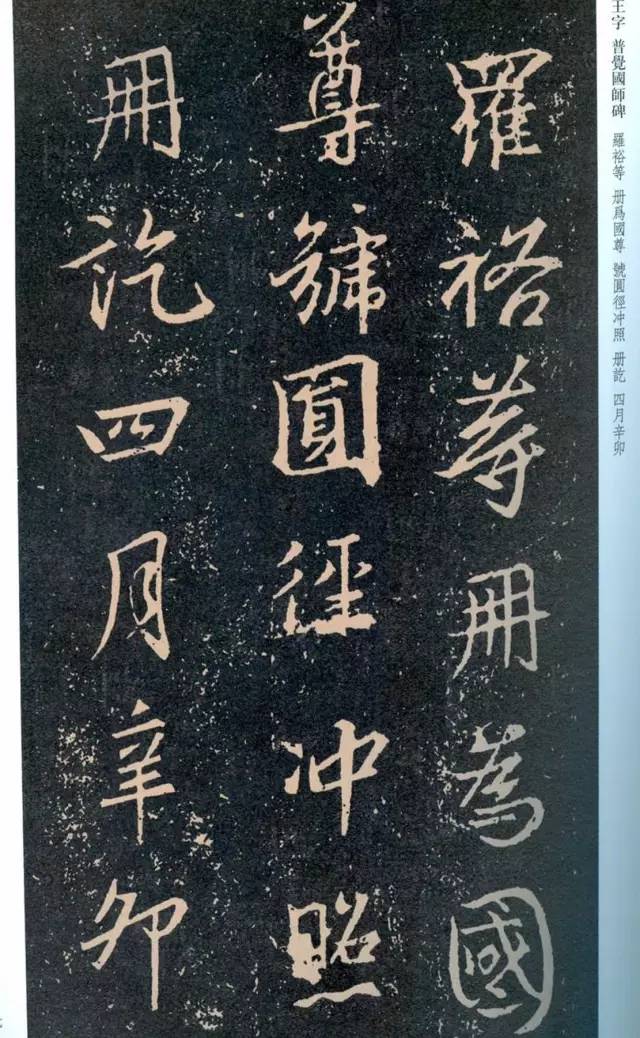 王字 普覺國師碑 羅裕等 册爲國尊 號圓徑冲照 册訖 四月辛卯
羅裕等冊為國
尊號圓徑冲照
冊訖四月辛卯